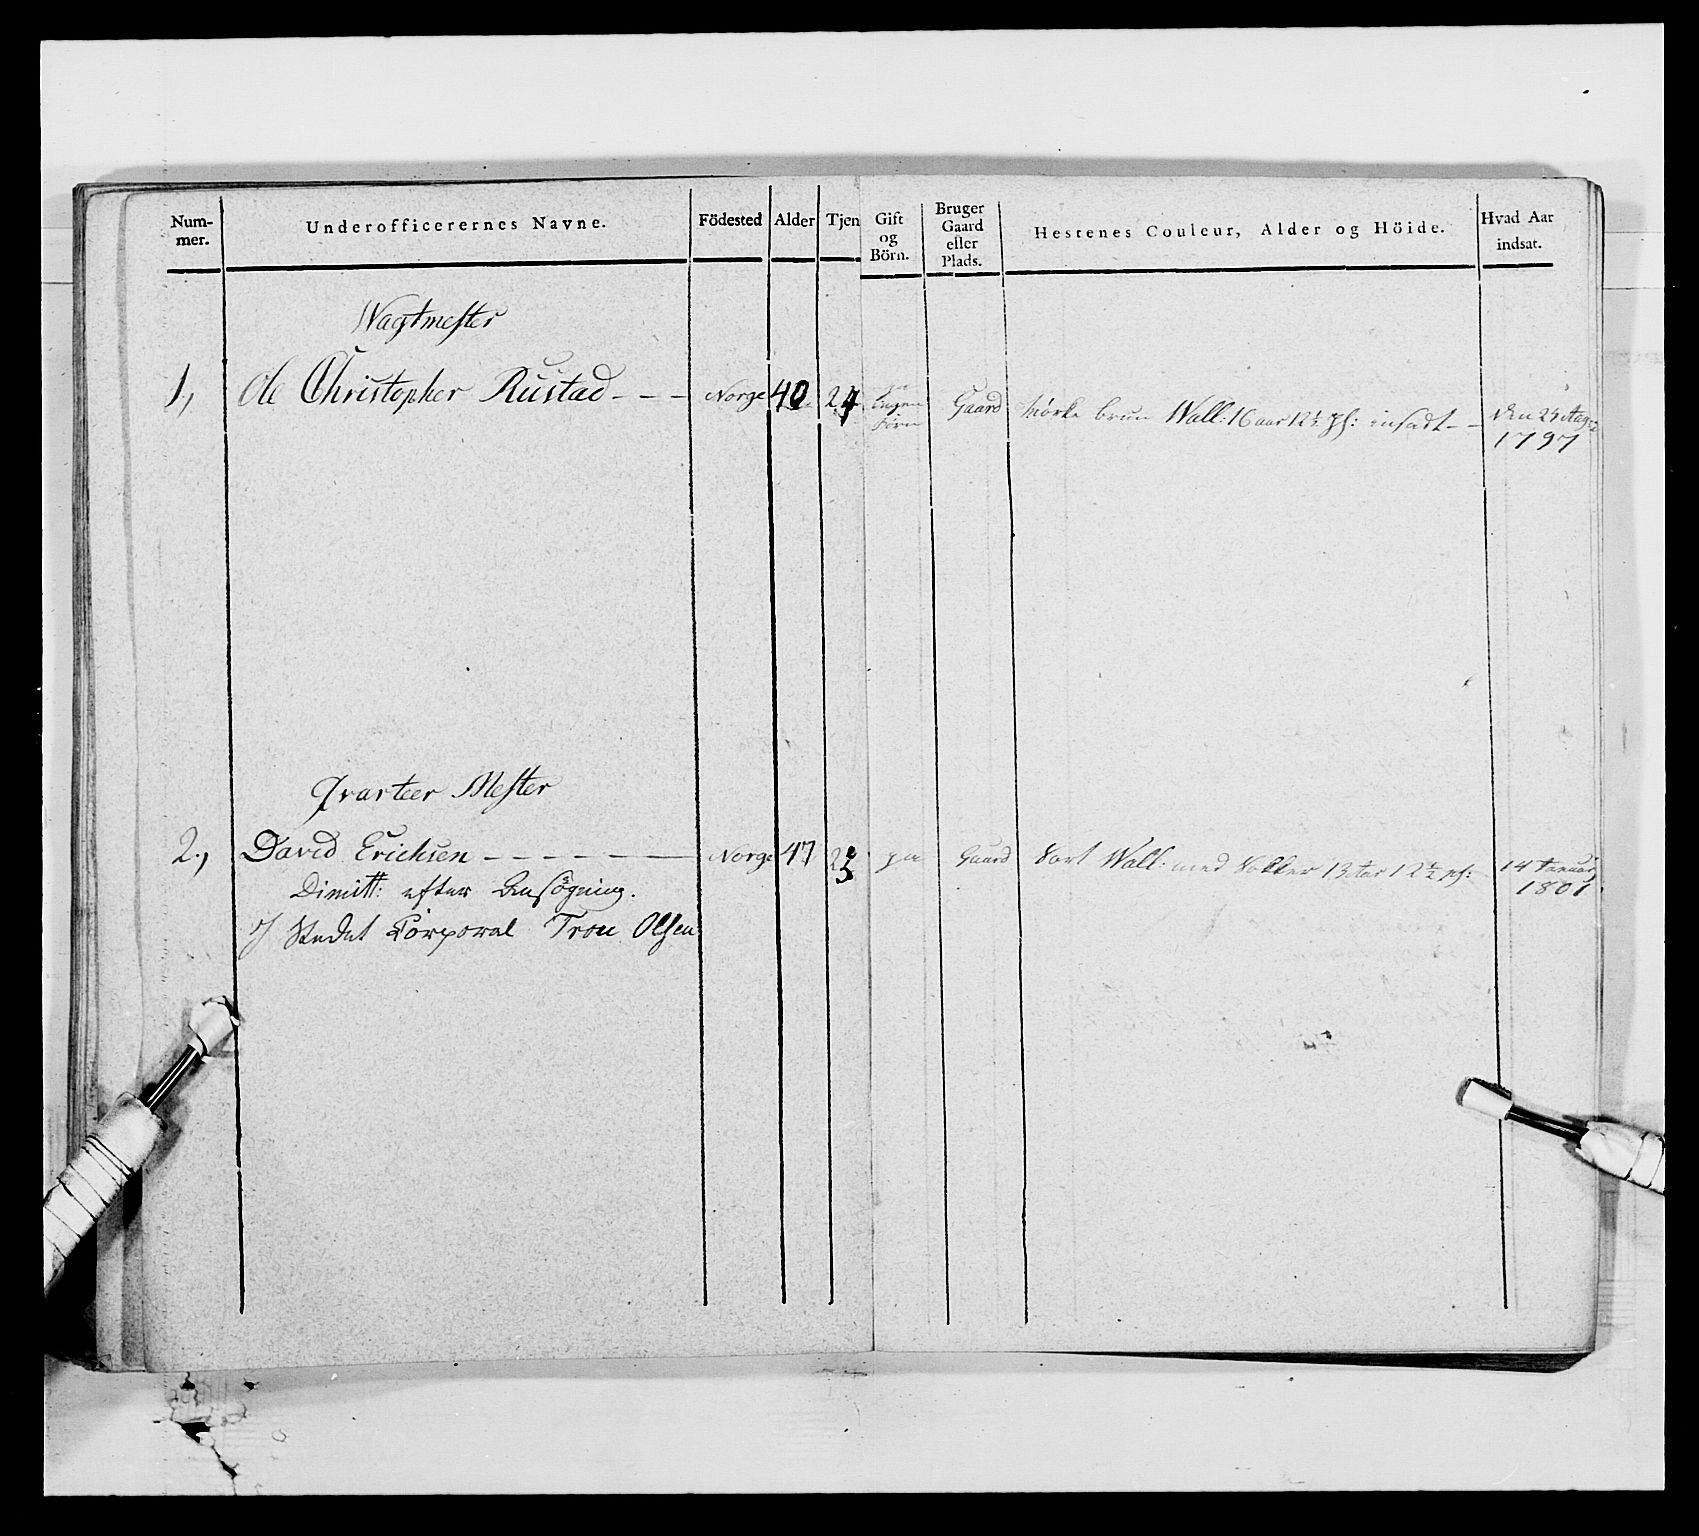 Num-
mer.
Underofficerernes Navne.
Födested
Alder
Tjen
Gift
og
Börn.
Bruger
Gaard
eller
Plads.
Hestenes Couleur, Alder og Höide.
Hvad Aar
indsat.
Wagtmester
1, Ole Christopher Rustad - - - Norge 40 24 ja Gaard Mørke brun Wall: 16 aar 12½ pf: indsadt - - den
ingen
börn
1797
Qvarteer Mester
2, David Erichsen - - - - - - Norge 47 23 ja Gaard Sort Wall: med Sokker 13 Aar 12½ pf: 14 Januarj
1801
Dimitt: efter Ansøgning.
J Stedet Corporal Tron Olsen